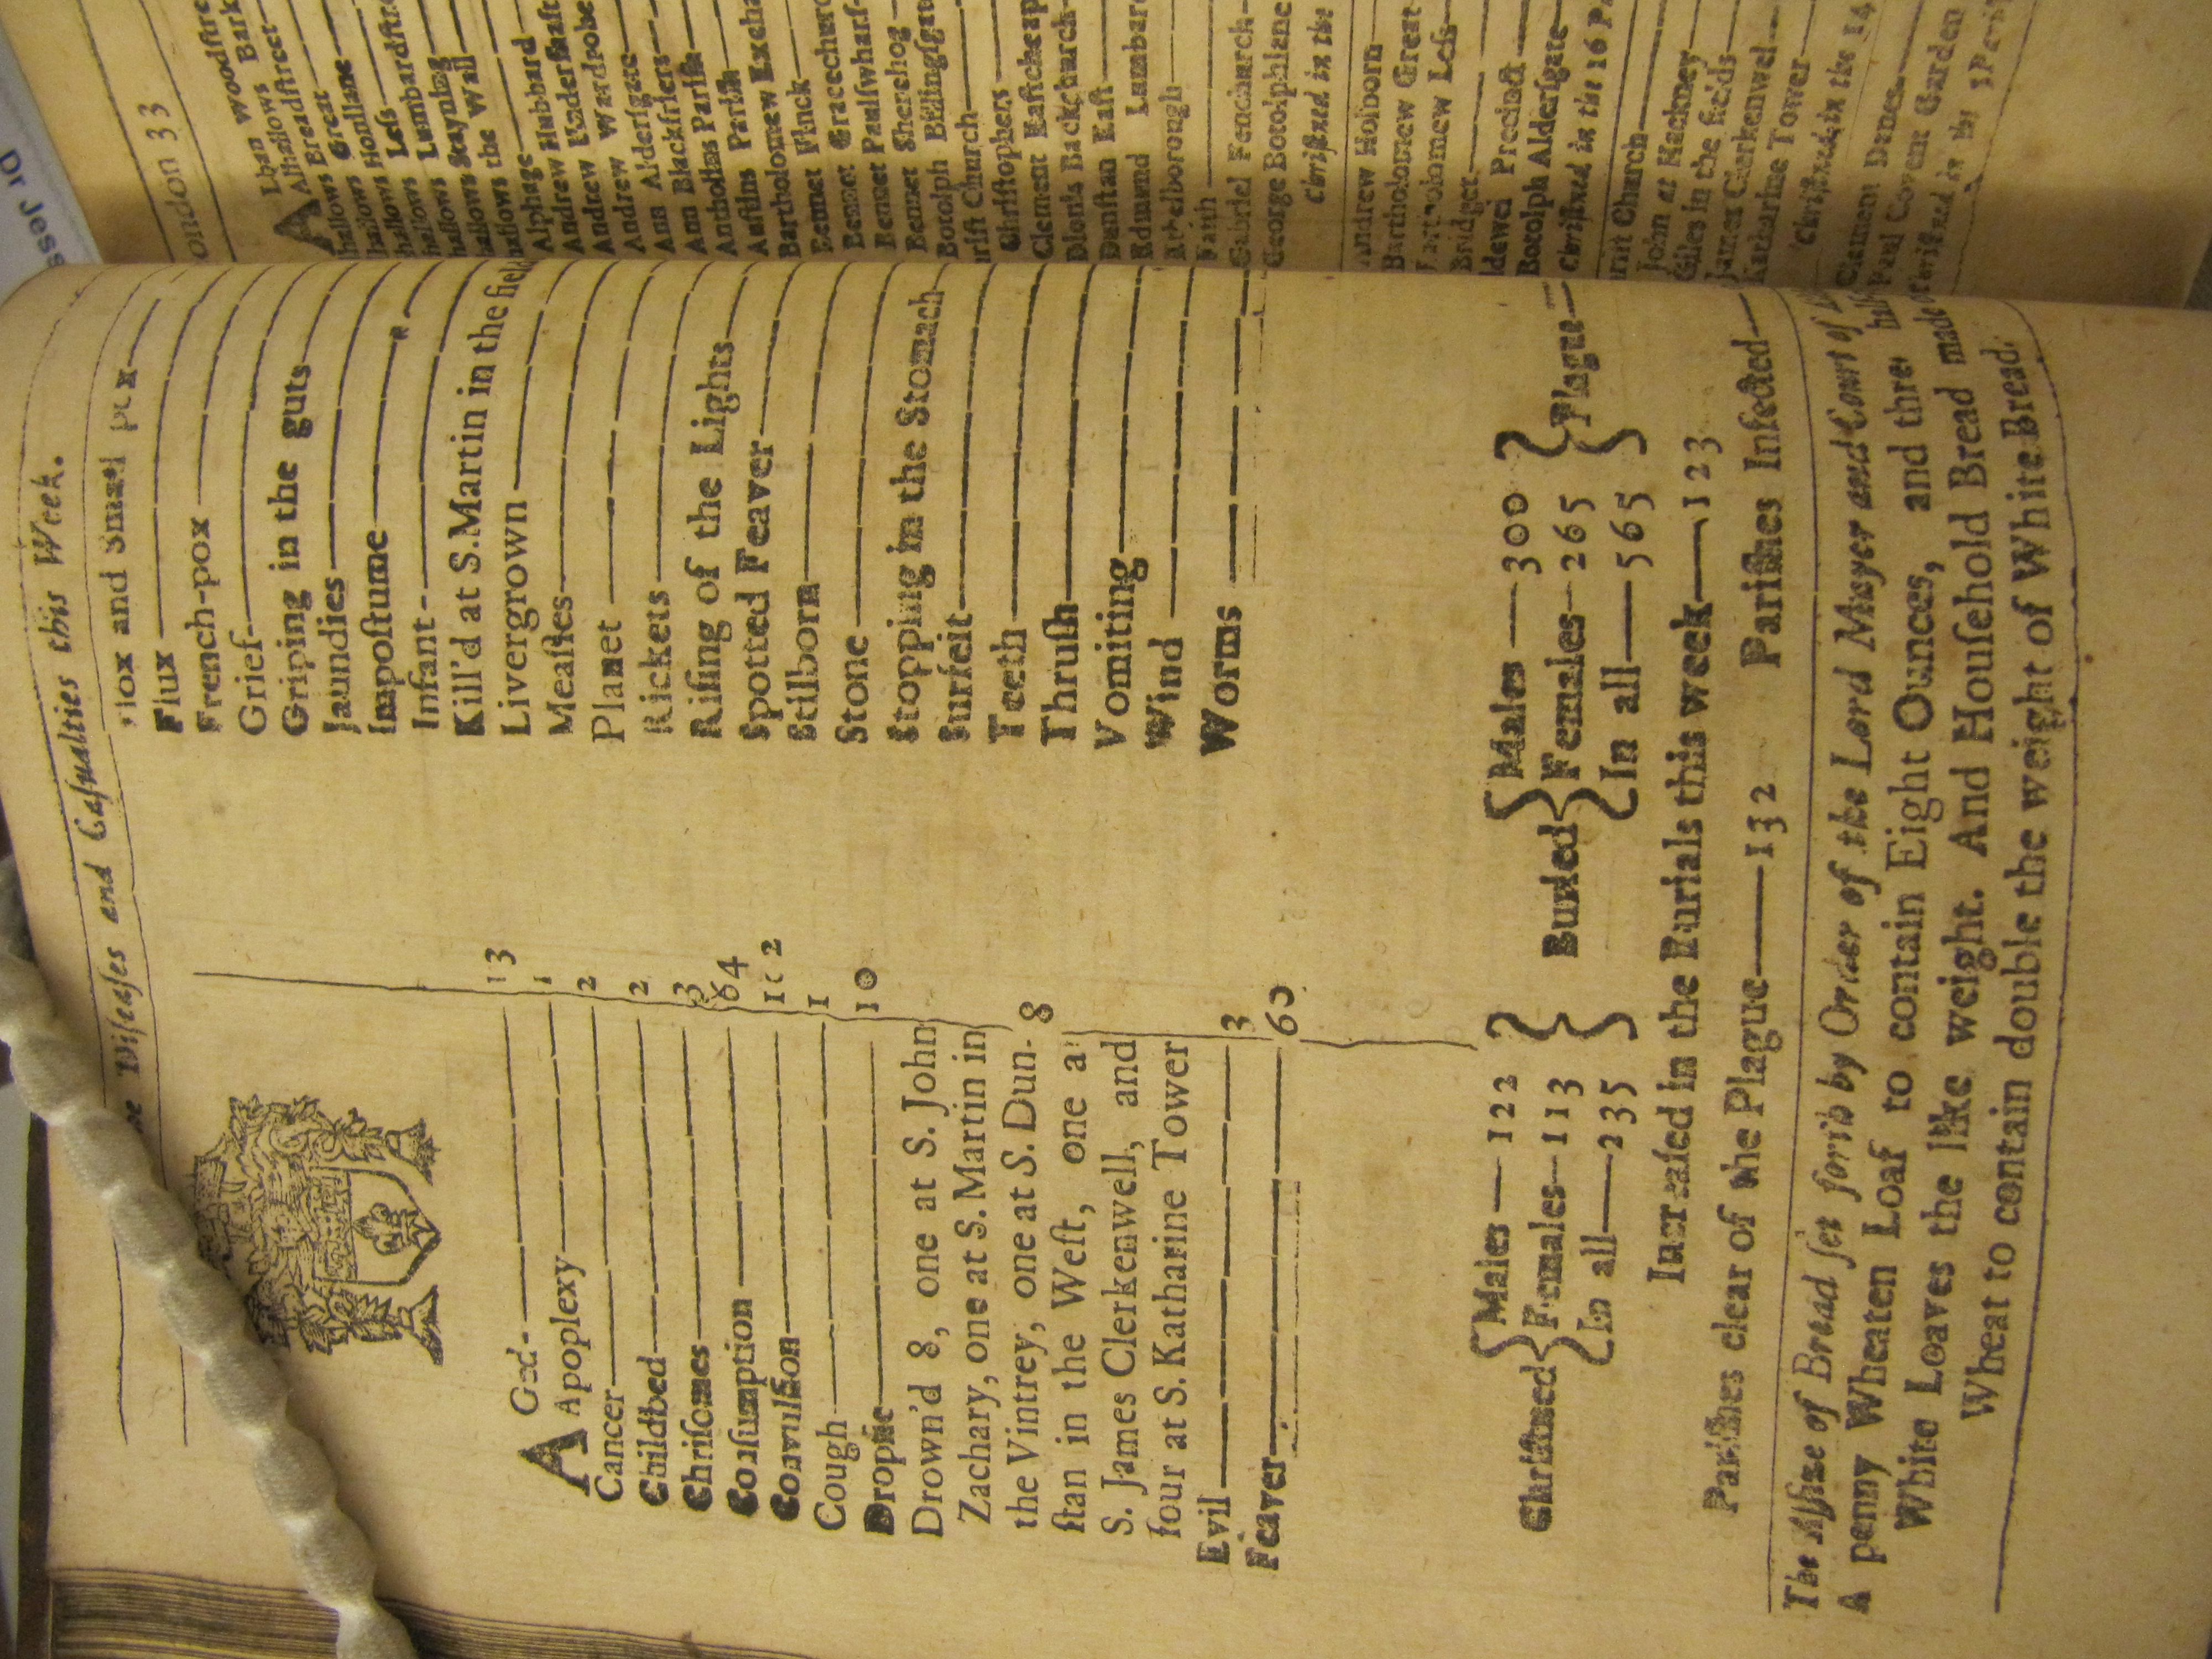 Diſeaſes and Caſualties this Week.
AGed 13
Apoplexy 1
Cancer 2
Childbed 2
Chriſomes 3
Conſumption 64
Convulſion 102
Cough 1
Dropſie 10
Drown'd 8, one at S. John
Zachary, one at S. Martin in
the Vintrey, one at S. Dun- 8
ſtan in the Weſt, one at
S. James Clerkenwell, and
four at S. Katharine Tower
Evil 3
Feaver 60
Flox and Small pox
Flux
French-pox
Grief
Griping in the guts
Jaundies
Impoſtume
Infant
Kill'd at S. Martin in the fiel
Livergrown
Meaſles
Planet
Rickets
Riſing of the Lights
Spotted Feaver
Stilborn
Stone
Stopping in the Stomach
Surfeit
Teeth
Thruſh
Vomiting
Wind
Worms
Chriſtned { Males — 122
Females — 113
In all — 235 }
Buried { Males — 300
Females — 265
In all — 565 } Plague
Increaſed in the Burials this week — 123
Pariſhes clear of the Plague — 132 Pariſhes Infected
The Aſſize of Bread ſet forth by Order of the Lord Mayor and Court of
A penny Wheaten Loaf to contain Eight Ounces, and three
White Loaves the like weight. And Houſehold Bread made
Wheat to contain double the weight of White Bread.
London 33
Lban Woodſtre
Alhallows Bark
Alhallows Breadſtreet
hallows Great
hallows Honilane
hallows Leſs
hallows Lumbardſtr
hallows Stayning
hallows the Wall
Alphage
Andrew Hubbard
Andrew Underſhaft
Andrew Wardrobe
Ann Alderſgate
Ann Blackfriers
Antholins Pariſh
Auſtins Pariſh
Bartholomew Excha
Bennet Finck
Bennet Gracechurc
Bennet Paulſwharf
Bennet Sherehog
Botolph Billingſgat
rift Church
Chriſtophers
Clement Eaſtcheap
Dionis Backchurch
Dunſtan Eaſt
Edmund Lumbar
Ethelborough
Faith
Gabriel Fenchurch
George Botolphlane
Chriſtned in the
Andrew Holborn
Bartholomew Great
Bartholomew Leſs
Bridget
Bridewel Precinct
Botolph Alderſgate
Chriſtned in the 16 Pa
Chriſt Church
John at Hackney
Giles in the fields
James Clerkenwel
Katharine Tower
Chriſtned in the 14
Clement Danes
Paul Covent Garden
Chriſtned in the 5 Pariſ